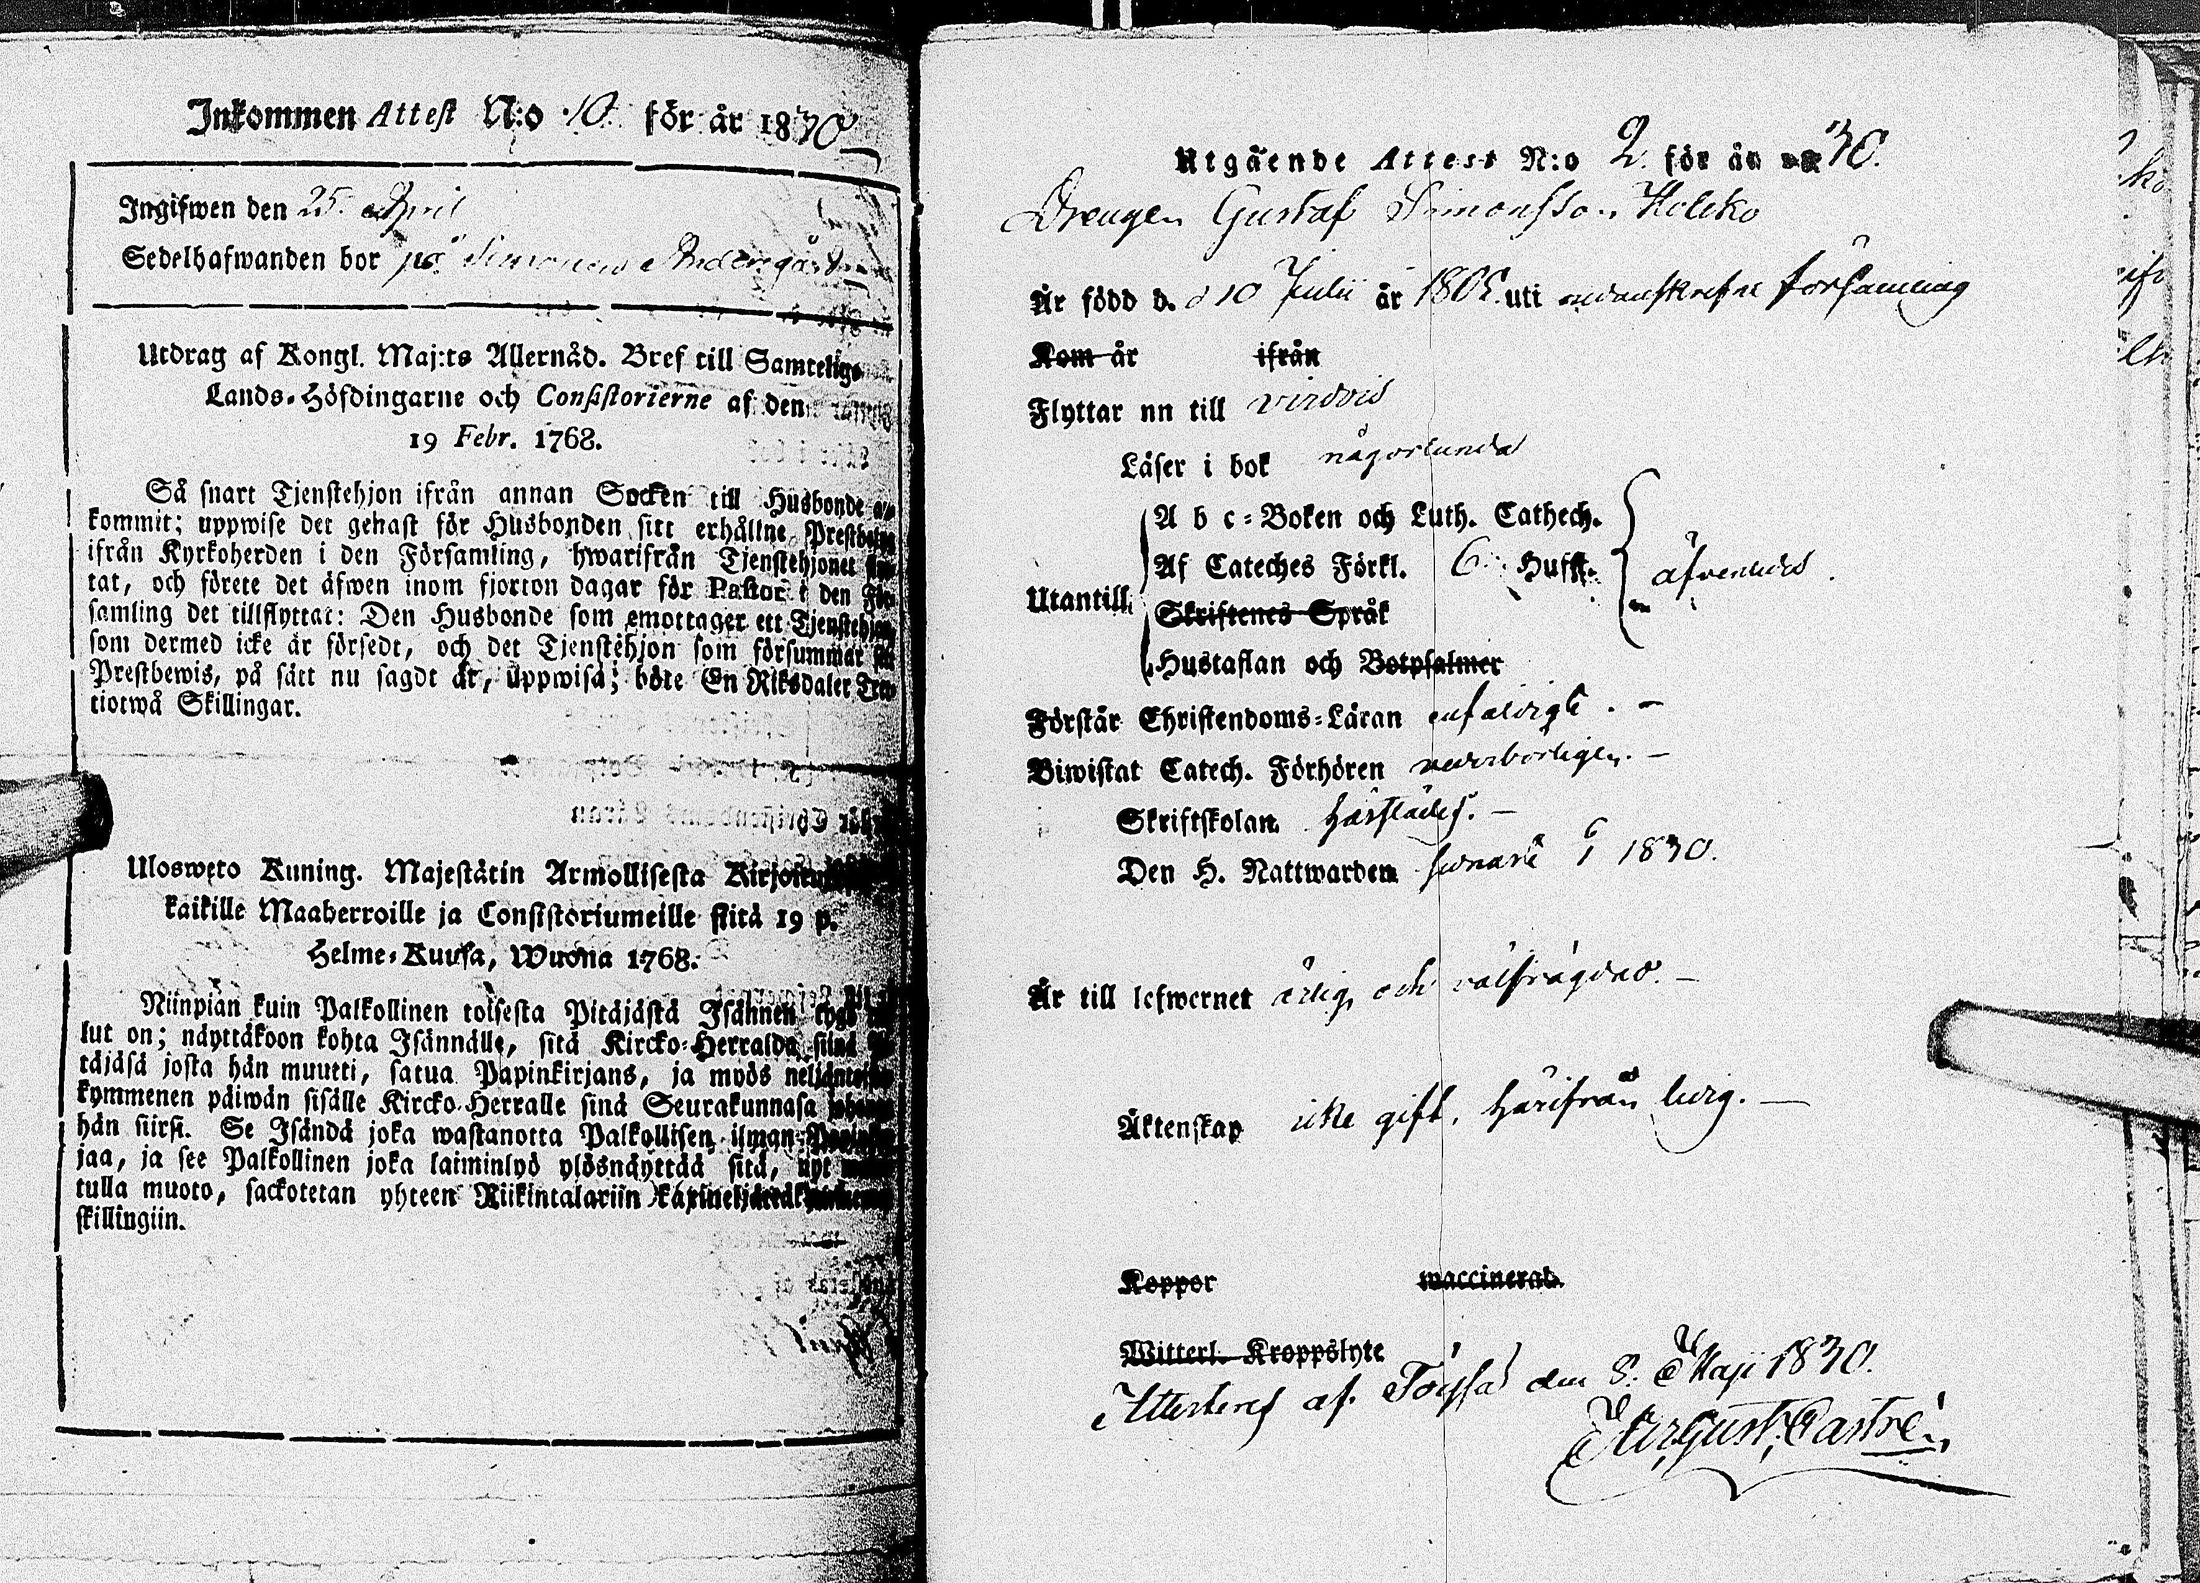 Inkommen Attest N:o 10. för år 1830
Ingifwen den 25. April
Sedelhafwanden bor på Simonens
Utdrag af Kongl. Maj:ts Allernåd. Bref till Samtelige
Lands-Höfdingarne och Consistorierne af den
19 Febr. 1768.
Så snart Tjenstehjon ifrån annan Socken till Husbonde
kommit; uppwise det gehast för Husbonden sitt erhållne
ifrån Kyrkoherden i den Församling, hwarifrån Tjenstehjonet
tat, och förete det äfwen inom fjorton dagar för Pastor i den
samling det tillflyttat: Den Husbonde som emottager ett Tjenstehjon,
som dermed icke är försedt, och det Tjenstehjon som försummar
Prestbewis, på sätt nu sagdt är, uppwisa; böte En Riksdaler Tret
tiotwå Skillingar.
Ulosweto Kuning. Majestätin Armollisesta
kaikille Maaherroille ja Consistoriumeille siitä 19 p.
Helme-Kuusa, Wuonna 1768.
Niinpian kuin Palkollinen toisesta Pitäjästä Isännen tygö
lut on; näyttäkoon kohta Isännälle, sitä Kircko-Herralda siinä
täjäsä josta hän muutti, saatua Papinkirjans, ja myös
kymmenen päiwän sisälle Kircko-Herralle sinä Seurakunnasa
hän siirsi. Se Isändä joka wastanotta Palkollisen ilman
jaa, ja see Palkollinen joka laiminlyö ylösnäyttää sitä, nyt
tulla muoto, sackotetan yhteen Riikintalariin
skillingiin.
Utgående Attest N:o 2. för år 30.
Drengen Gustaf Simonsson Holcko
Är född d. d 10 Julii år 1805. uti nedanskrefne församling
Kom år ifrån
Flyttar nn till Virdois
Läser i bok någorlunda
A b c-Boken och Luth. Cathech.
Af Cateches Förkl. 6. Hufst.
Utantill äfvenledes.
Skriftenes Språk
Hustaflan och Botpsalmer
Förstår Christendoms-Läran enfaldigt. -
Biwistat Catech. Förhören vederbörligen. -
Skriftskolan härstädes. -
Den H. Nattwarden 1830.
Är till lefwernet ärlig och välfrägdad. -
Äktenskap icke gift, härifrån ledig. -
Koppor waccinerad.
Witterl. Kroppslyte
Attesteras af Töysä den 8. Maji 1830.
August Castrén